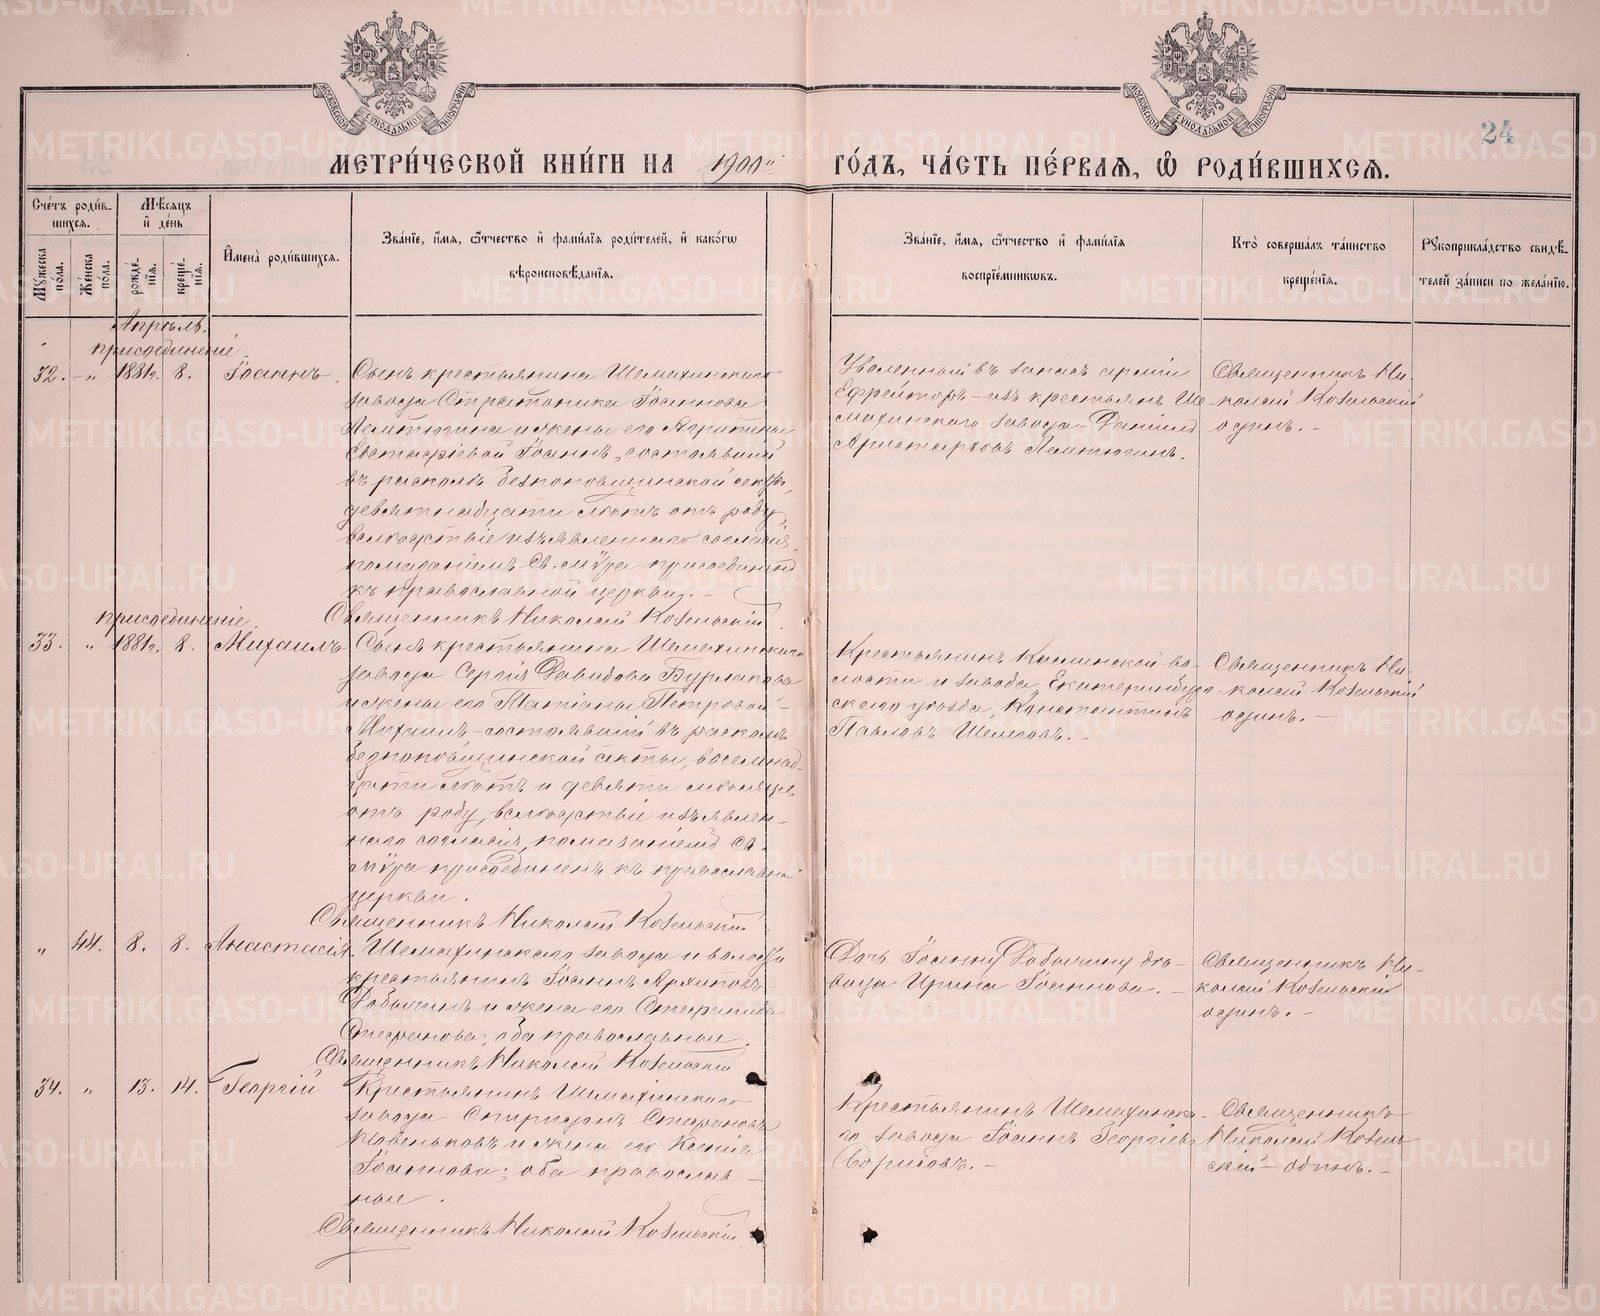 МОСКОВСКОЙ СѴНОДАЛЬНОЙ ТИПОГРАФІИ
МОСКОВСКОЙ СѴНОДАЛЬНОЙ ТИПОГРАФІИ
24
МЕТРИ́ЧЕСКОЙ КНИ́ГИ НА 1900й ГО́ДЪ, ЧА́СТЬ ПЕ́РВАѦ, Ѡ РОДИ́ВШИХСѦ.
Сче́тъ роди́в-
шихсѧ.
Мѣ́сѧцъ
и҆ де́нь
Мꙋ́жеска по́ла.
Же́нска по́ла.
рожде́-
нїѧ.
креще́-
нїѧ.
И҆мена̀ роди́вшихсѧ.
Зва́нїе, и҆́мѧ, ѻ҆́тчество и҆ фами́лїѧ роди́телей, и҆ како́гѡ
вѣроисповѣ́данїѧ.
Зва́нїе, и҆́мѧ, ѻ҆́тчество и҆ фами́лїѧ
воспрїе́мникѡвъ.
Кто̀ соверша́лъ та́инство
креще́нїѧ.
Рꙋкоприкла́дство свидѣ́-
телей за́писи по жела́нїю.
Апрѣль.
присоединеніе.
32. - " 1881г. 8. Іоаннъ.
Сынъ крестьянина Шемахинскаго
завода Стратоника Іоаннова
Лемтюгина и жены его Агрипины
Евстафіевой Іоаннъ, состоявшій
въ расколѣ безпоповщинской секты,
девятнадцати лѣтъ отъ роду,
вслѣдствіе изъявленнаго согласія,
помазаніемъ Св. мѵра присоединенъ
къ православной церкви. –
Священникъ Николай Козельскій
Уволенный въ запасъ арміи
Ефрейторъ – изъ крестьянъ Ше
махинскаго завода Даніилъ
Аристарховъ Лемтюгинъ.
Священникъ Ни-
колай Козельскій
одинъ. –
присоединеніе.
33. " 1881г. 8. Михаилъ
Сынъ крестьянина Шемахинскаго
завода Сергія Давидова Бурлакова
и жены его Татіаны Петровой –
Михаилъ – состоявшій въ расколѣ
безпоповщинской секты, восемнад-
цати лѣтъ и девяти мѣсяцевъ
отъ роду, вслѣдствіе изъявлен-
наго согласія, помазаніемъ Св.
мѵра присоединенъ къ православной
церкви.
Священникъ Николай Козельскій
Крестьянинъ Каслинской во-
лости и завода, Екатеринбург-
скаго уѣзда, Константинъ
Павловъ Шелеговъ. –
Священникъ Ни-
колай Козельскій
одинъ. –
" 44. 8. 8. Анастасія.
Шемахинскаго завода и волости
крестьянинъ Іоаннъ Архиповъ
Добычинъ и жена его Стефанида
Стефанова; оба православные.
Священникъ Николай Козельскій
Дочь Іоанну Добычину дѣ-
вица Ирина Іоаннова. –
Священникъ Ни-
колай Козельскій
одинъ. –
34. " 13. 14. Георгій
Крестьянинъ Шемахинскаго
завода Спиридонъ Стефановъ
Новеньковъ и жена его Ксенія
Іоаннова; оба православ –
ные.
Священникъ Николай Козельскій
Крестьянинъ Шемахинска-
го завода Іоаннъ Георгіевъ
Борисовъ. –
Священникъ
Николай Козель
скій – одинъ. –
METRIKI.GASO-URAL.RU